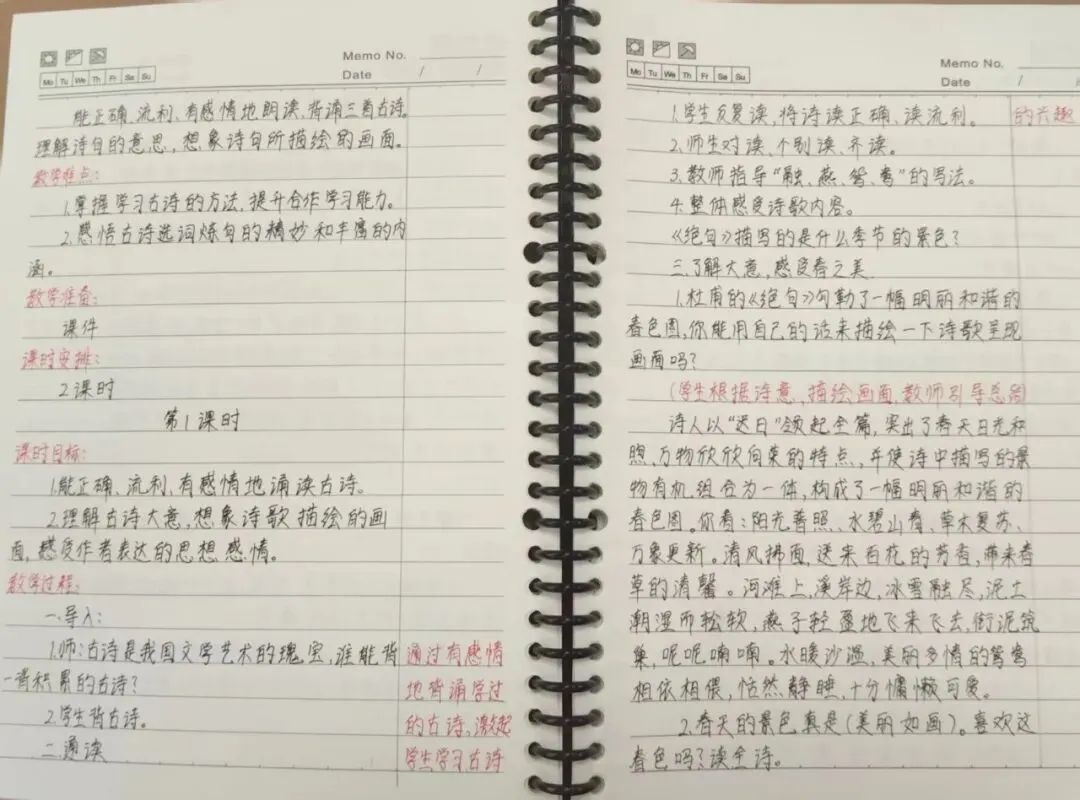 Memo No.
Mo Tu We Th Fr Sa Su
Date / /
能正确、流利、有感情地朗读、背诵三首古诗。
理解诗句的意思，想象诗句所描绘的画面。
教学难点：
1.掌握学习古诗的方法，提升合作学习能力。
2.感悟古诗选词炼句的精妙和丰富的内
涵。
教学准备：
课件
课时安排：
2课时
第1课时
课时目标：
1.能正确、流利、有感情地诵读古诗。
2.理解古诗大意，想象诗歌描绘的画
面，感受作者表达的思想感情。
教学过程：
一.导入：
1.师：古诗是我国文学艺术的瑰宝，谁能背
一背积累的古诗？
2.学生背古诗。
二.通读
通过有感情
地背诵学过
的古诗，激起
学生学习古诗
Memo No.
Mo Tu We Th Fr Sa Su
Date /
1.学生反复读，将诗读正确、读流利。
的兴趣
2.师生对读、个别读、齐读。
3.教师指导“融、燕、鸳、鸯”的写法。
4.整体感受诗歌内容。
《绝句》描写的是什么季节的景色？
三.了解大意，感受春之美
1.杜甫的《绝句》勾勒了一幅明丽和谐的
春色图，你能用自己的话来描绘一下诗歌呈现
画面吗？
(学生根据诗意，描绘画面，教师引导总结)
诗人以“迟日”领起全篇，突出了春天日光和
煦、万物欣欣向荣的特点，并使诗中描写的景
物有机组合为一体，构成了一幅明丽和谐的
春色图。你看：阳光普照、水碧山青、草木复苏、
万象更新。清风拂面，送来百花的芳香，带来春
草的清馨。河滩上，溪岸边，冰雪融尽，泥土
潮湿而松软，燕子轻盈地飞来飞去，衔泥筑
巢，呢呢喃喃。水暖沙温，美丽多情的鸳鸯
相依相偎，恬然静睡，十分慵懒可爱。
2.春天的景色真是(美丽如画)。喜欢这
春色吗？读全诗。